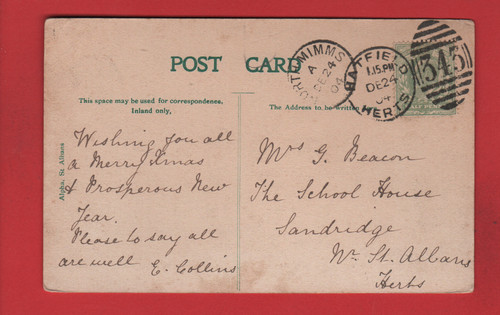 POST CARD
This space may be used for correspondence.
Inland only,
The Address to be written
NORTH MIMMS
A
DE 24
04
HATFIELD
1.15 PM
DE 24
04
HERTS
345
Wishing you all
a Merry Xmas
& Prosperous New
Year.
Please to say all
are well E. Collins
Mrs G. Beacon
The School House
Sandridge
Nr. St. Albans
Herts
Alpha, St Albans